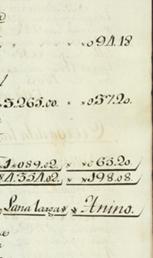 094.18
3.265.00. 037.20.
1.089.02 065.20
4.354.02. 198.08.
Lana larga Anino.